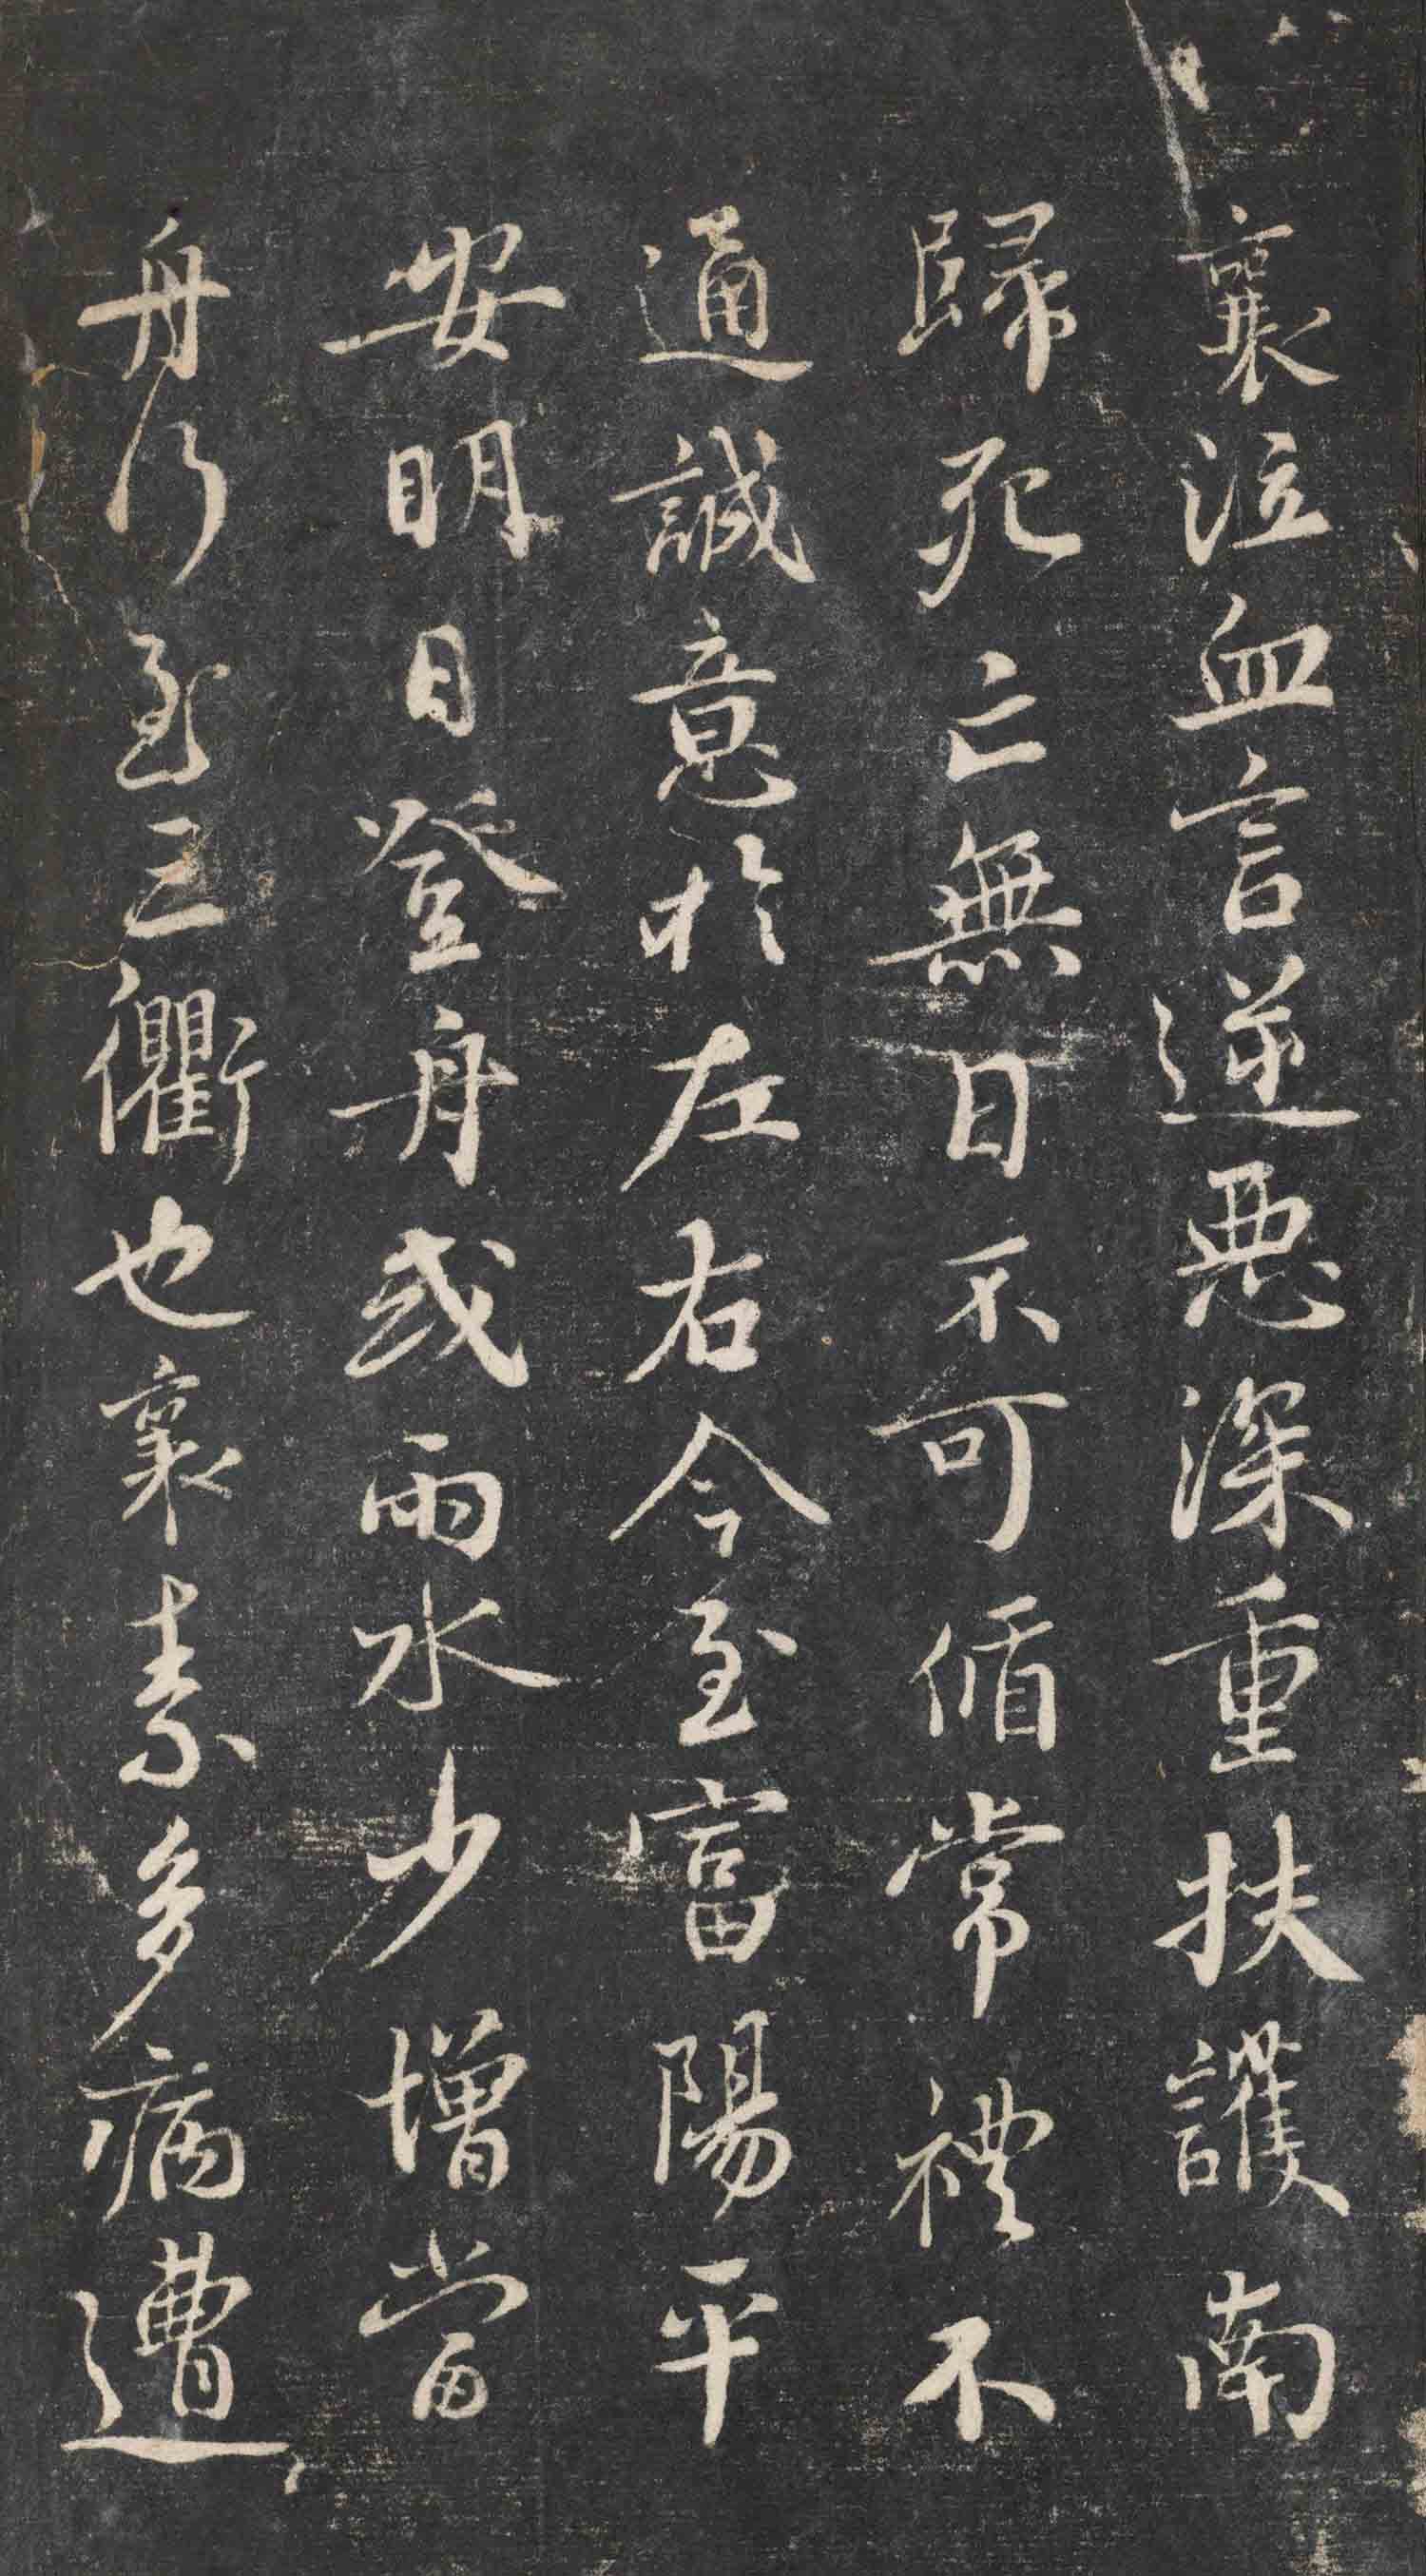 襄泣血言逆惡深重扶護南
歸死亡無日不可循常禮不
通誠意於左右今至富陽平
安明日登舟或雨水少增當
舟行至三衢也襄素多病遭